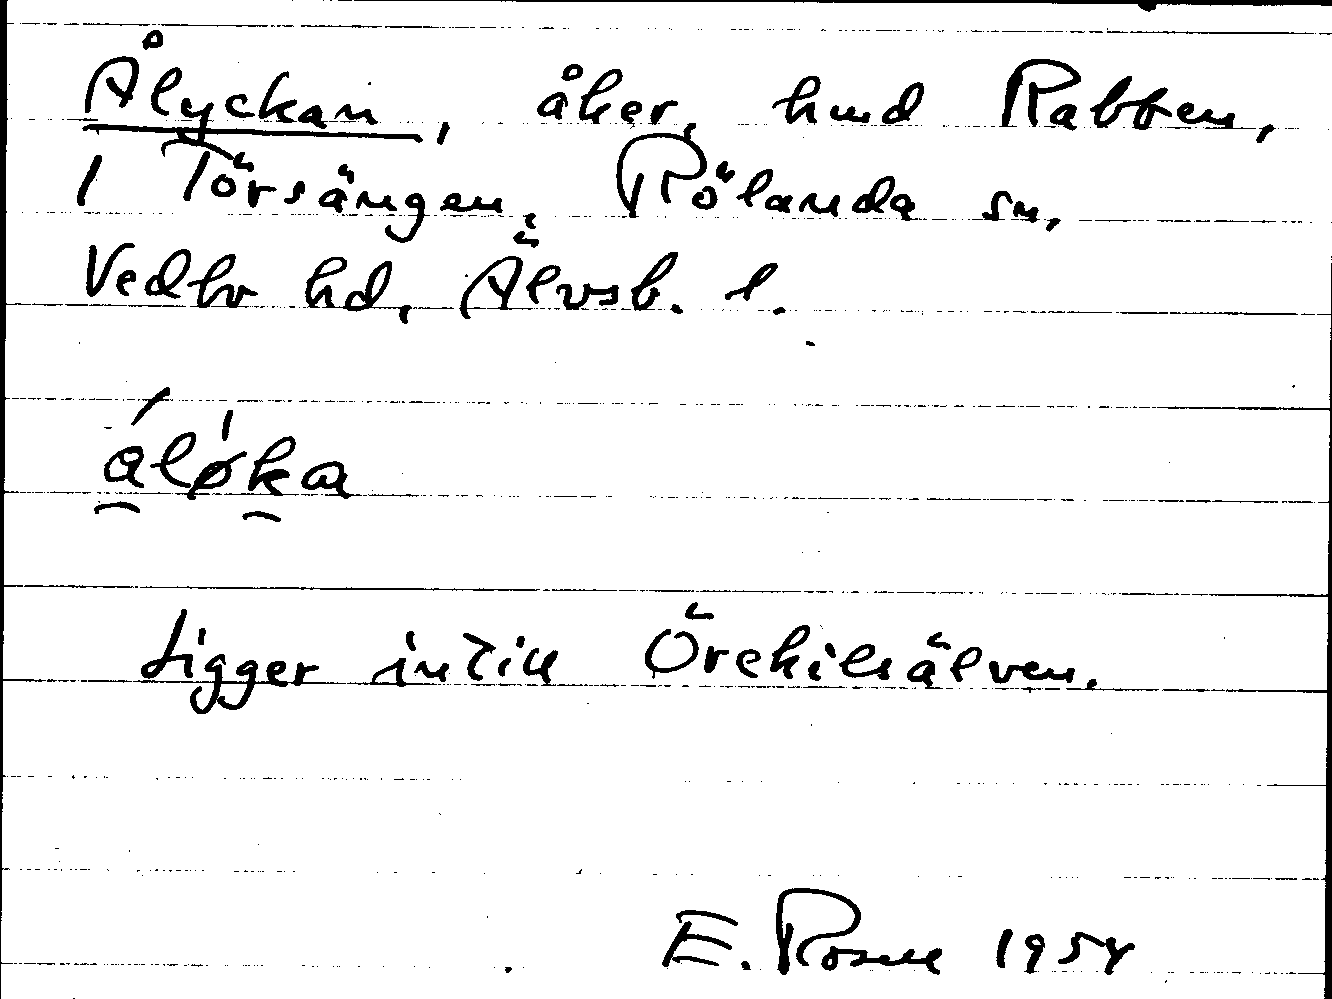 Ålyckan, åker, hmd Rabben,
1 Törsängen, Rölanda sn,
Vedbo hd, Älvsb. l.
áløka
Ligger intill Örekilsälven.
E. Rosell 1954